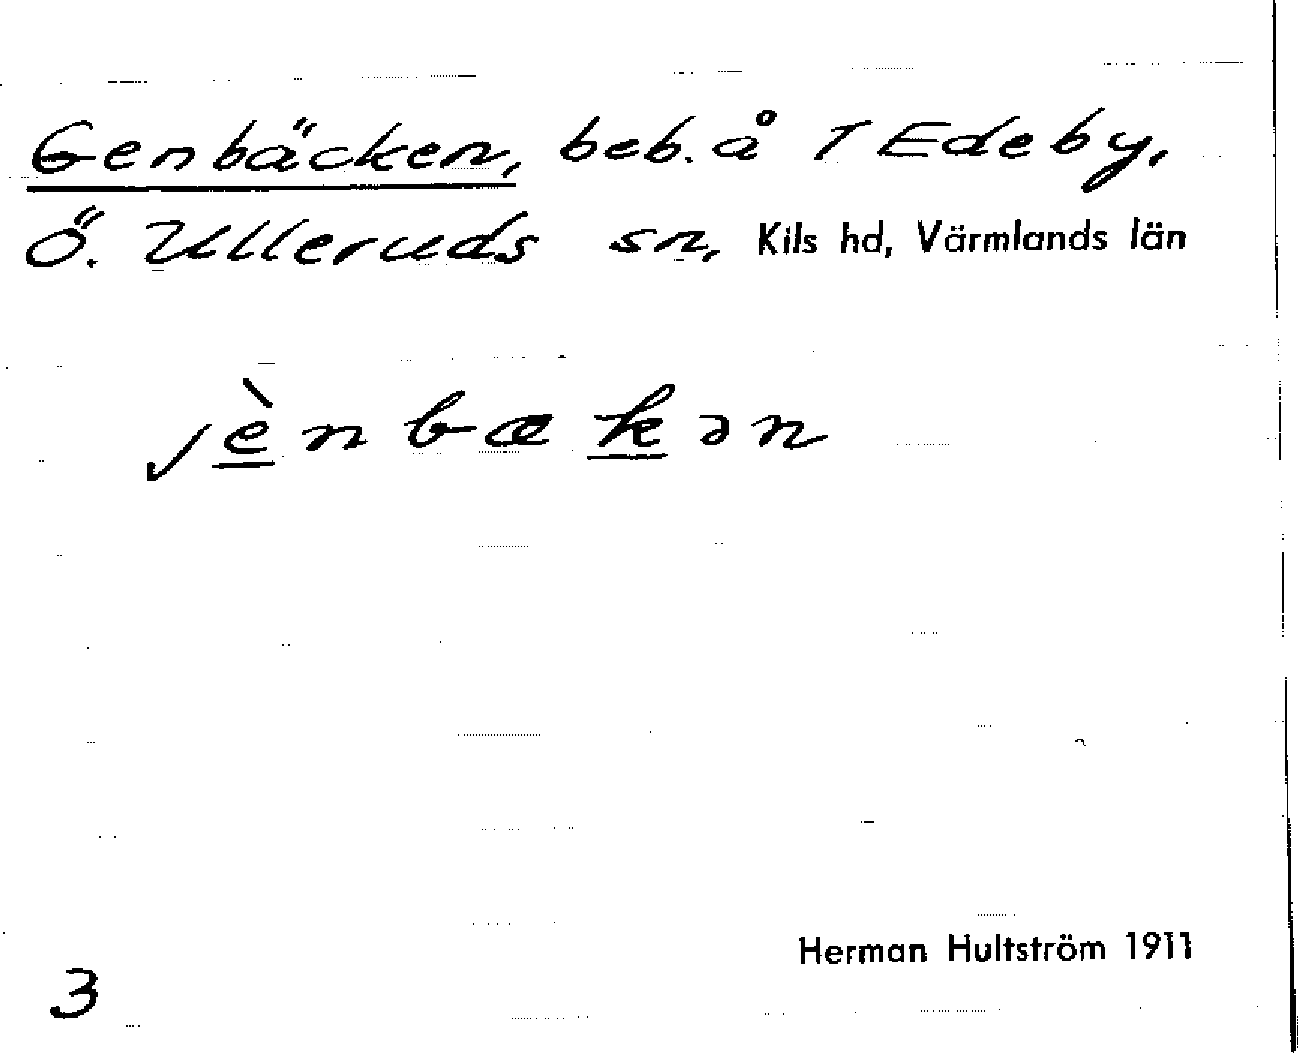 Genbäcken, beb. å 1 Edeby,
Ö. Ulleruds sn, Kils hd, Värmlands län
jènbækən
Herman Hultström 1911
3